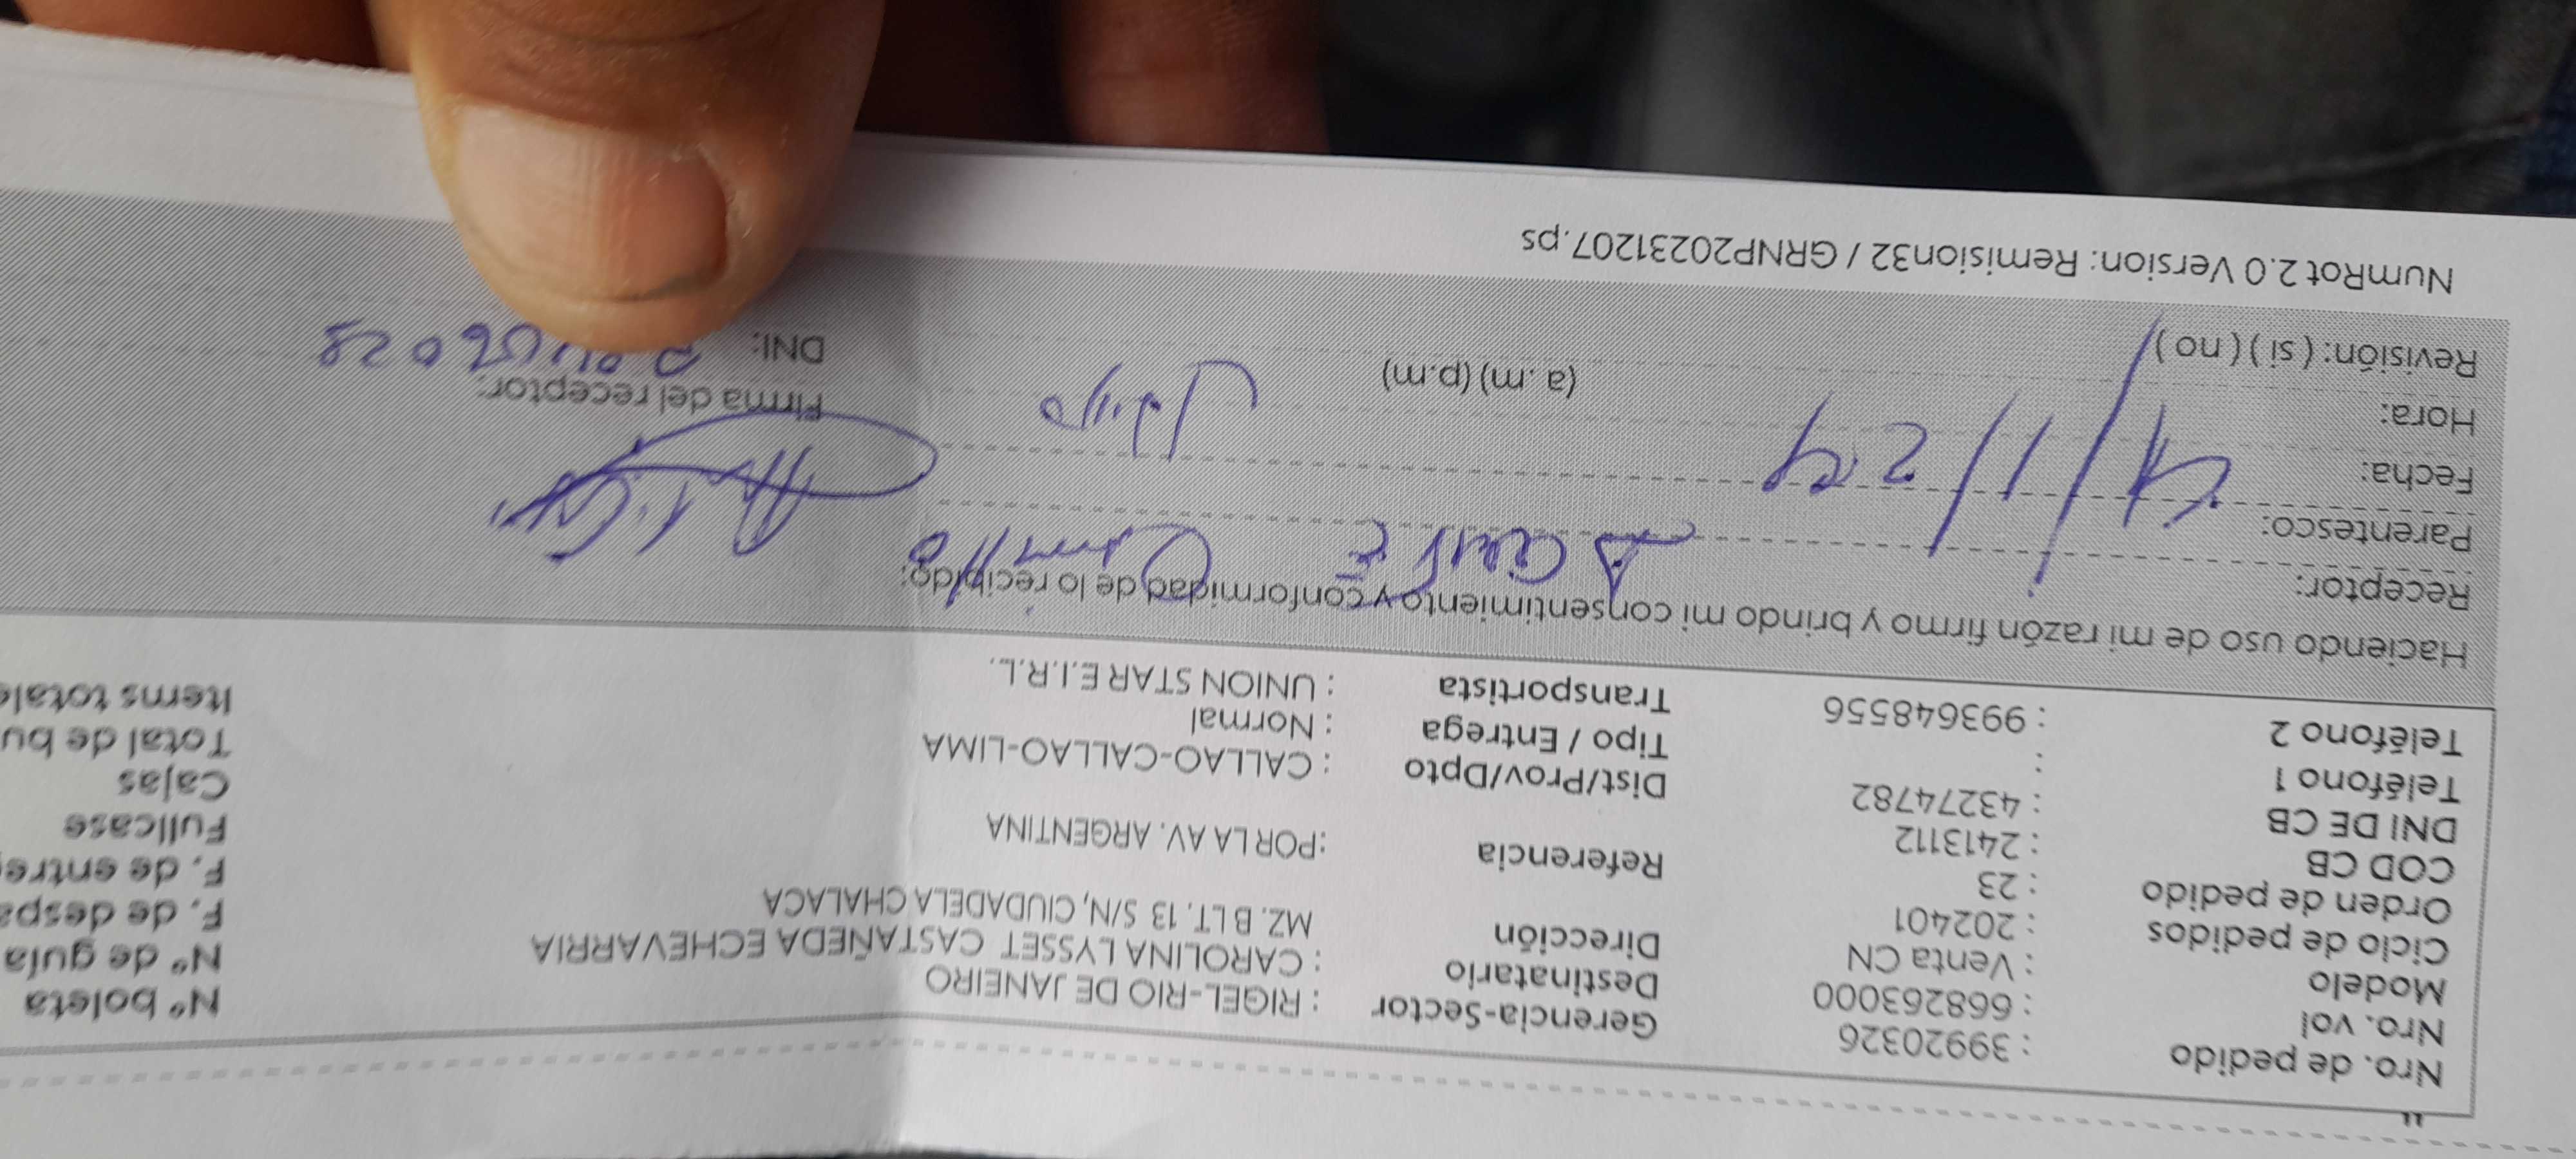 Nro. de pedido : 39920326 Gerencia-Sector : RIGEL-RIO DE JANEIRO Nº boleta
Nro. vol : 668263000 Destinatario : CAROLINA LYSSET CASTAÑEDA ECHEVARRIA Nº de guía
Modelo : Venta CN Dirección MZ. B LT. 13 S/N, CIUDADELA CHALACA F. de despa
Ciclo de pedidos : 202401 F. de entreg
Orden de pedido : 23 Referencia :POR LA AV. ARGENTINA Fullcase
COD CB : 2413112 Cajas
DNI DE CB : 43274782 Dist/Prov/Dpto : CALLAO-CALLAO-LIMA Total de bu
Teléfono 1 : Tipo / Entrega : Normal Items totale
Teléfono 2 : 993648556 Transportista : UNION STAR E.I.R.L.
Haciendo uso de mi razón firmo y brindo mi consentimiento y conformidad de lo recibido:
Receptor:
Parentesco:
Fecha: 4/1/24
Hora: (a.m) (p.m) Firma del receptor:
Revisión: ( si ) ( no ) DNI:
NumRot 2.0 Version: Remision32 / GRNP20231207.ps